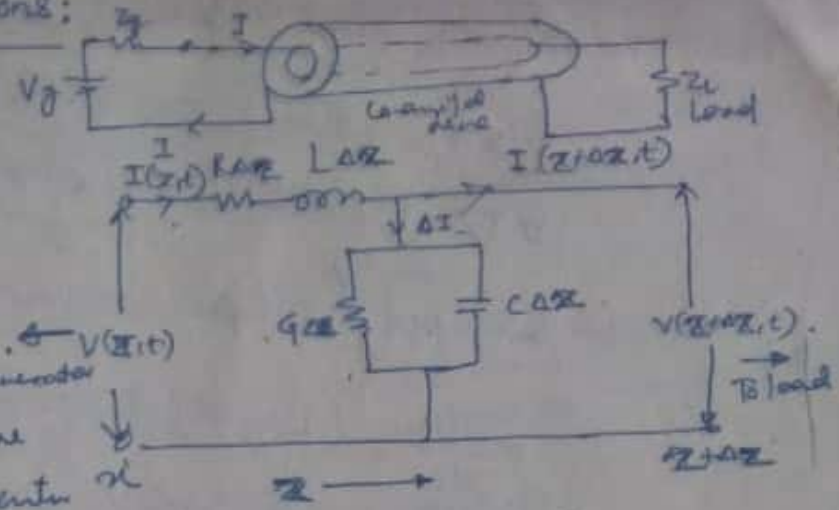 ons:
Zg I
Vg
Co-axial line
ZL Load
I
I(z,t) RΔz LΔz I(z+Δz,t)
ΔI
GΔz CΔz
V(z,t) V(z+Δz,t).
To load
z z+Δz